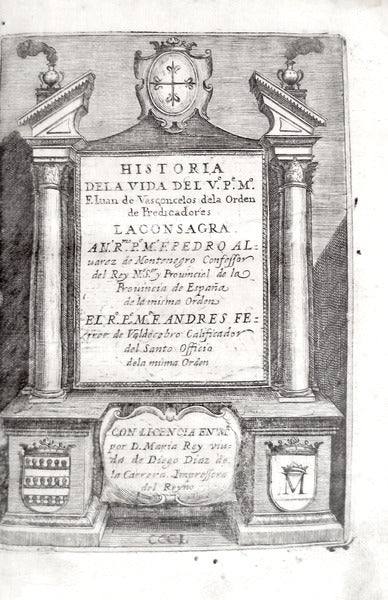 HISTORIA
DELA VIDA DEL V.º P.º M.º
F. Iuan de Vasconcelos dela Orden
de Predicadores
LA CONSAGRA.
Al R.mo P.º M.º F. PEDRO AL-
uarez de Montenegro Confessor
del Rey N.º S.or y Prouincial de la
Prouincia de España
de la misma Orden
EL R.º P.º M.º F. ANDRES FE-
rrer de Valdecebro Calificador
del Santo Officio
dela misma Orden
CON LICENCIA EN M.d
por D. Maria Rey viu-
da de Diego Diaz de
la Carrera. Impressora
del Reyno
M